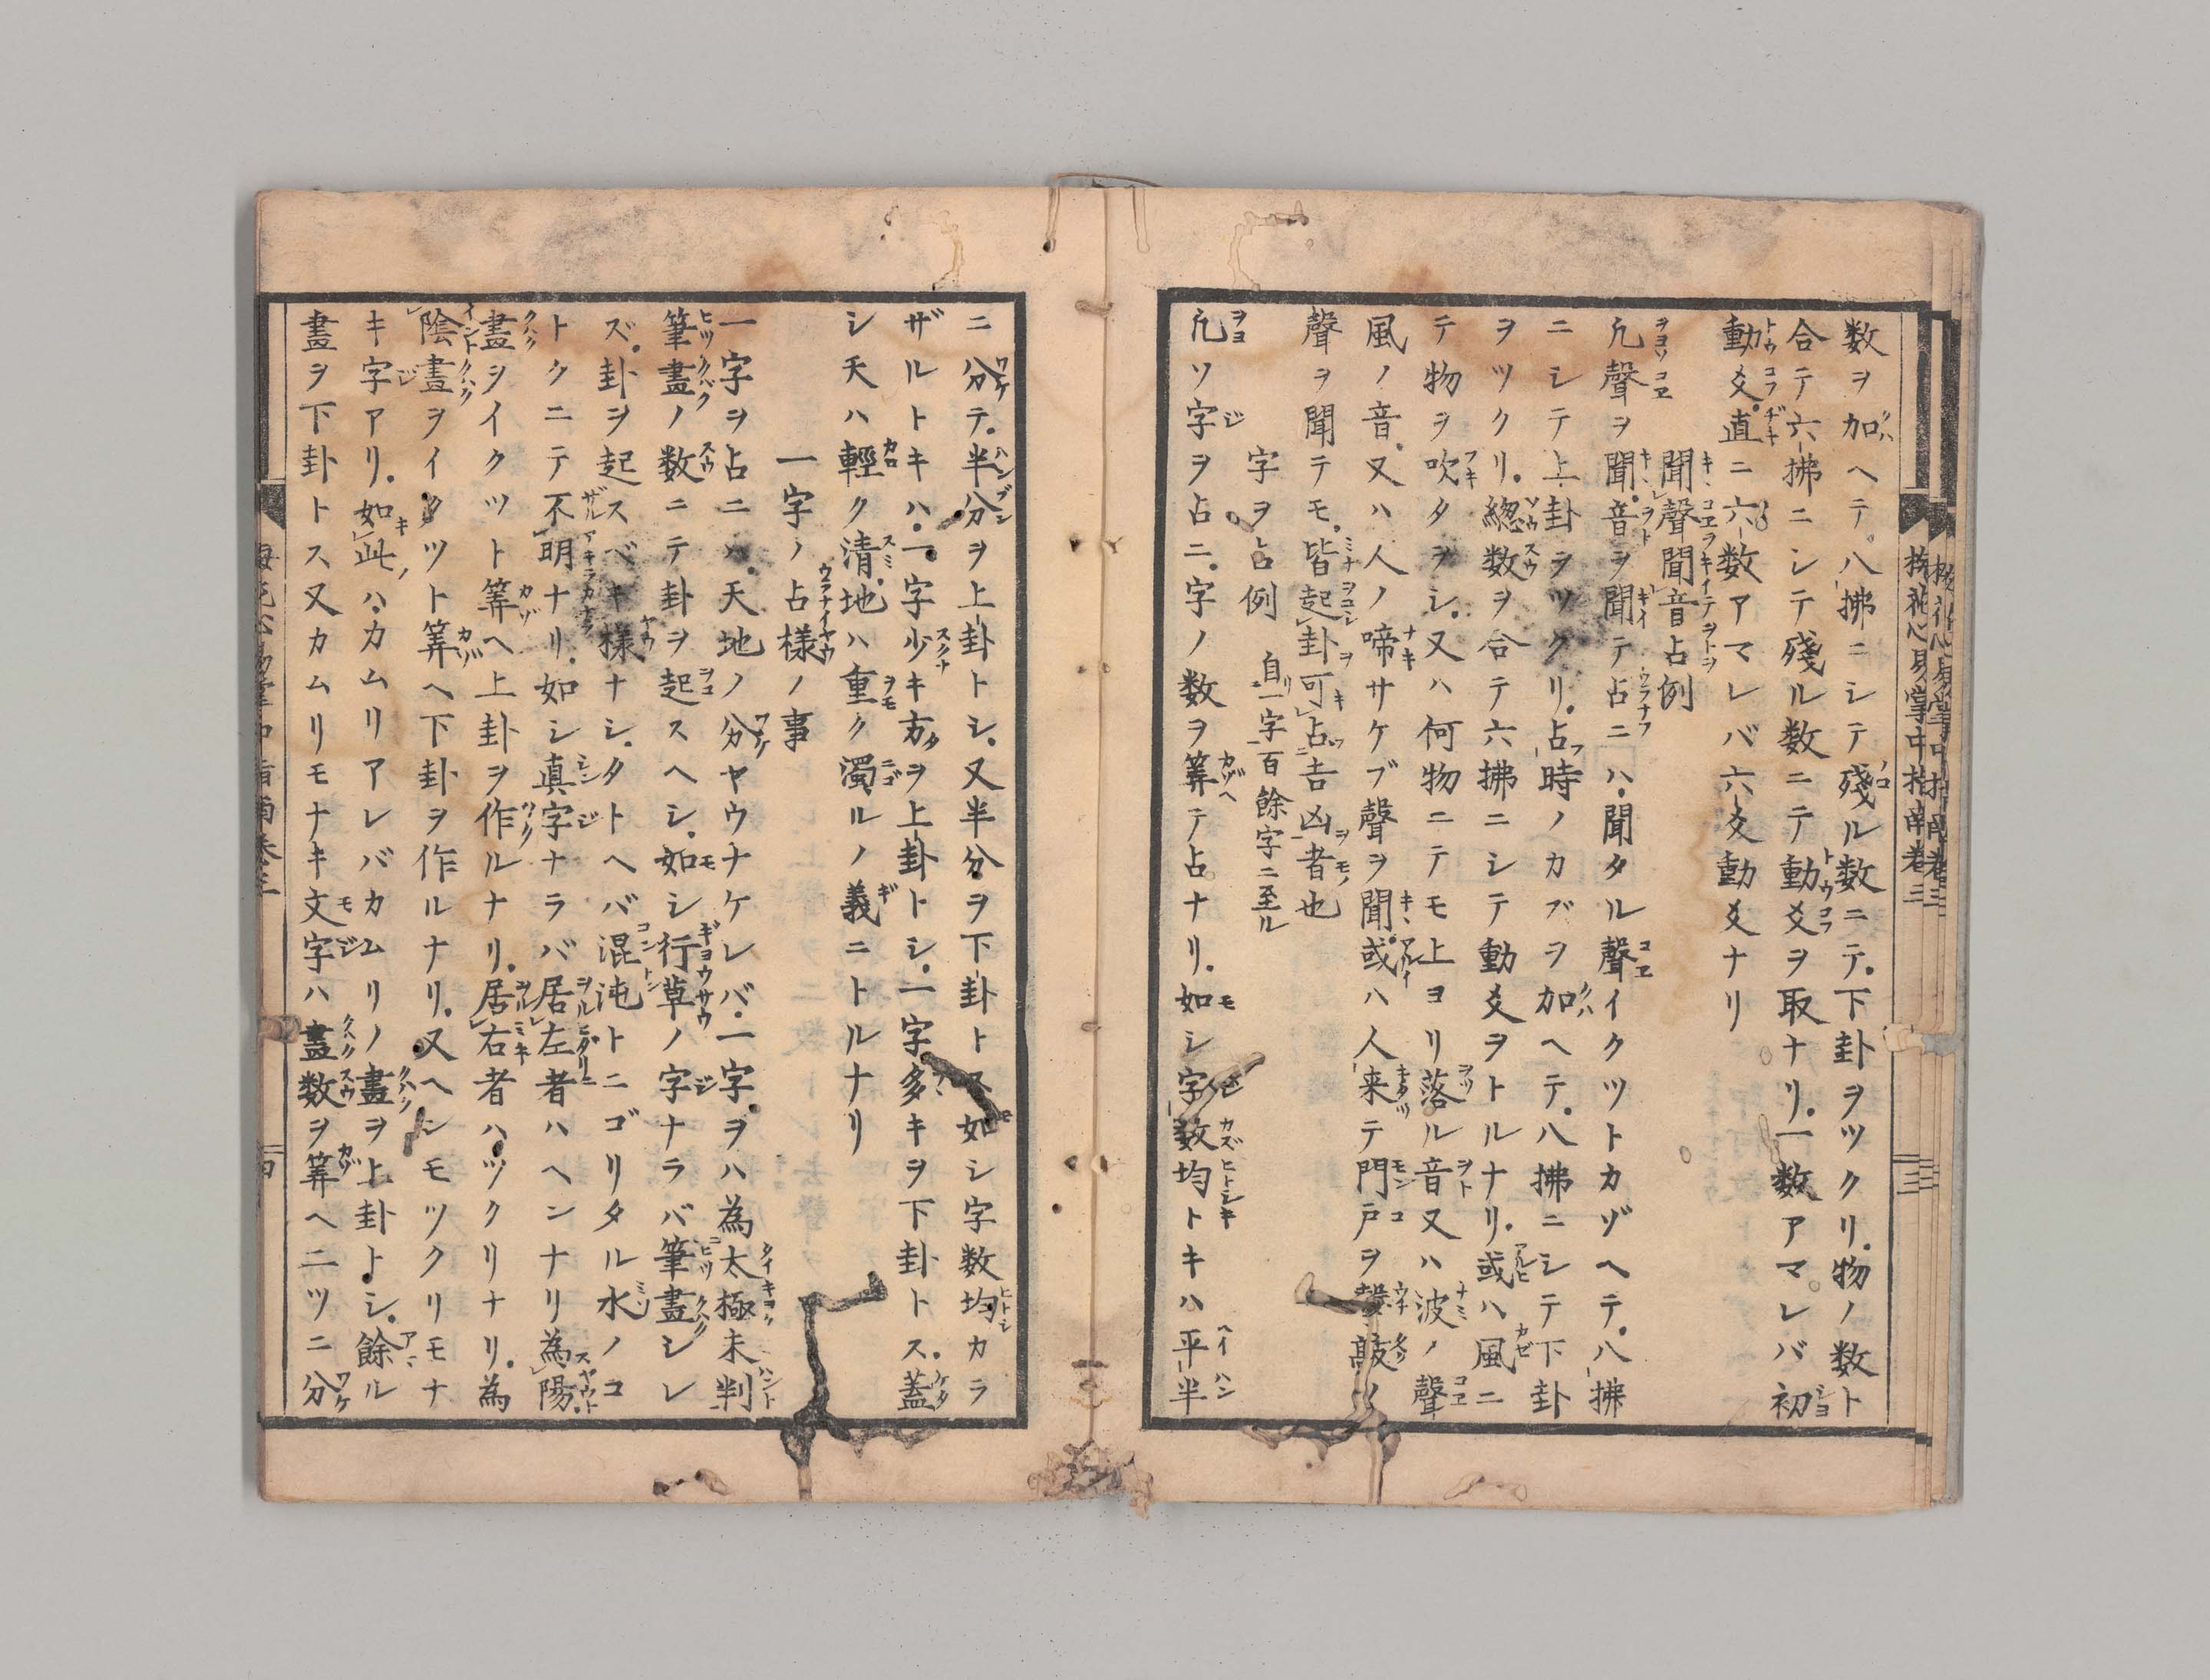 数ヲ加ヘテ八拂ニシテ殘ル数ニテ下卦ヲツクリ物ノ数ト
合テ六拂ニシテ殘ル数ニテ動爻ヲ取ナリ一数アマレバ初
動爻直ニ六数アマレバ六爻動爻ナリ
聞聲聞音占例
凢聲ヲ聞音ヲ聞テ占ニハ聞タル聲イクツトカゾヘテ八拂
ニシテ上卦ヲツクリ占時ノカズヲ加ヘテ八拂ニシテ下卦
ヲツクリ總数ヲ合テ六拂ニシテ動爻ヲトルナリ或ハ風ニ
テ物ヲ吹タヲシ又ハ何物ニテモ上ヨリ落ル音又ハ波ノ聲
風ノ音又ハ人ノ啼サケブ聲ヲ聞或ハ人来テ門戸ヲ敲ノ
聲ヲ聞テモ皆起卦可占吉凶者也
字ヲ占例 自一字百餘字ニ至ル
凢ソ字ヲ占ニ字ノ数ヲ筭テ占ナリ如シ字数均トキハ平半
ニ分テ半分ヲ上卦トシ又半分ヲ下卦トス如シ字数均カラ
ザルトキハ一字少キ方ヲ上卦トシ一字多キヲ下卦トス蓋
シ天ハ輕ク清地ハ重ク濁ルノ義ニトルナリ
一字ノ占様ノ事
一字ヲ占ニハ天地ノ分ヤウナケレバ一字ヲハ為太極未判
筆畫ノ数ニテ卦ヲ起スヘシ如シ行草ノ字ナラバ筆畫シレ
ズ卦ヲ起スベキ様ナシタトヘバ混沌トニゴリタル水ノコ
トクニテ不明ナリ如シ真字ナラバ居左者ハヘンナリ為陽
畫ヲイクツト筭ヘ上卦ヲ作ルナリ居右者ハツクリナリ為
陰畫ヲイクツト筭ヘ下卦ヲ作ルナリ又ヘンモツクリモナ
キ字アリ如此ハカムリアレバカムリノ畫ヲ上卦トシ餘ル
畫ヲ下卦トス又カムリモナキ文字ハ畫数ヲ筭ヘ二ツニ分